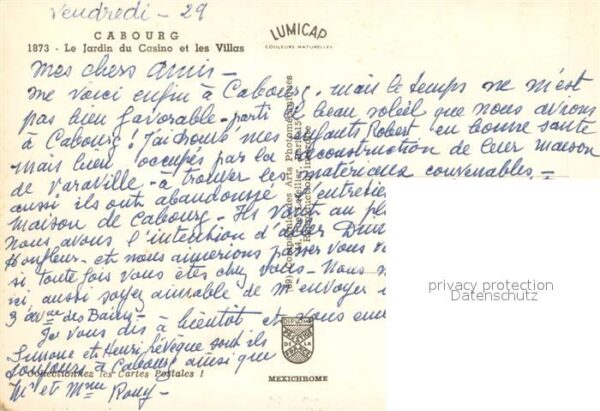 Vendredi - 29
CABOURG
1873 - Le Jardin du Casino et les Villas
LUMICAP
COULEURS NATURELLES
Mes chers Amis -
me voici enfin à Cabourg - mais le temps ne m'est
pas bien favorable - parti le beau soleil que nous avions
à Cabourg ! J'ai trouvé mes enfants Robert en bonne santé
mais bien occupés par la reconstruction de leur maison
de Varaville - à trouver les matériaux convenables -
aussi ils ont abandonné l'entretien
maison de Cabourg - Ils vont au
Nous avons l'intention d'aller
Honfleur - et nous aimerions passer vous
si toutefois vous êtes chez vous - Nous
ni aussi soyez aimable de m'envoyer
3 av. des Bains -
Je vous dis à bientôt et vous
Simone et Henri Lévêque sont ils
toujours à Cabourg ainsi que
Mr et Mme Rouy -
Collectionnez les Cartes Postales !
MEXICHROME
privacy protection
Datenschutz